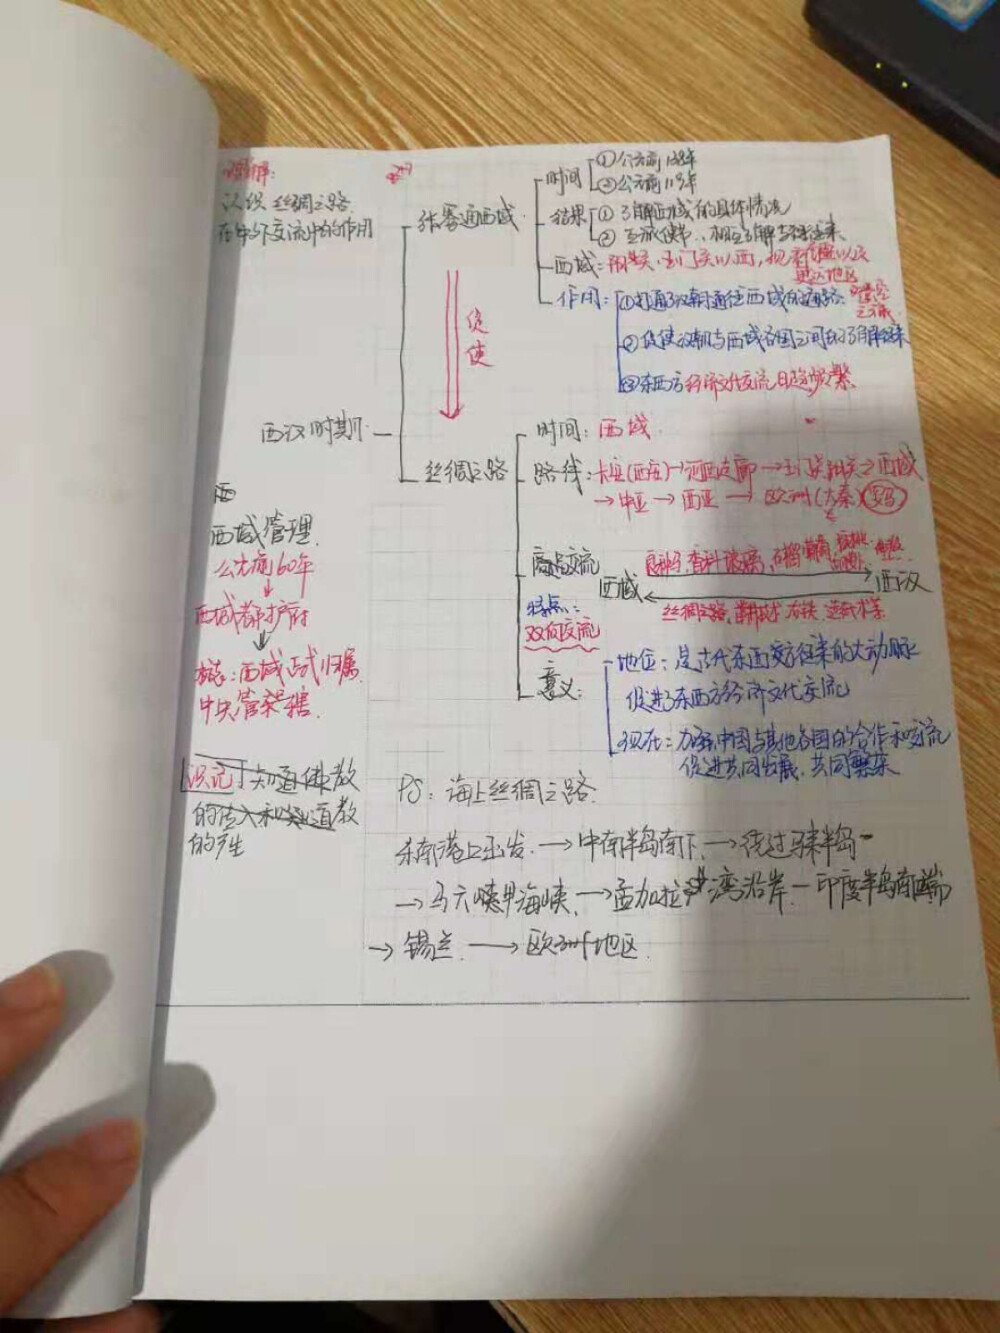 理解:
认识丝绸之路
在中外交流中的作用
西汉时期
张骞通西域
时间
①公元前138年
②公元前119年
结果
①了解西域的具体情况
②互派使节,相互了解与往来
西域:阳关、玉门关以西,现
作用:
①打通汉朝通往西域的道路
②促使汉朝与西域各国之间的了解往来
③东西方经济文化交流日趋频繁
促
使
丝绸之路
时间:西域
路线:长安(西安)→河西走廊→玉门关阳关→西域
→中亚→西亚→欧洲(大秦)
商品交流
西域
良种马 香料 玻璃
西汉
丝绸之路
特点:
双向交流
意义:
地位:是古代东西方往来的大动脉
促进了东西方经济文化交流
现在:加强中国与其他各国的合作和交流
促进共同发展、共同繁荣
西
西域管理
公元前60年
↓
西域都护府
↓
标志:西域正式归属
中央管辖
识记 知道佛教
的传入和道教
的产生
PS:海上丝绸之路
东南港口出发→中南半岛南下→绕过马来半岛
→马六甲海峡→孟加拉湾沿岸—印度半岛南端
→锡兰→欧洲地区